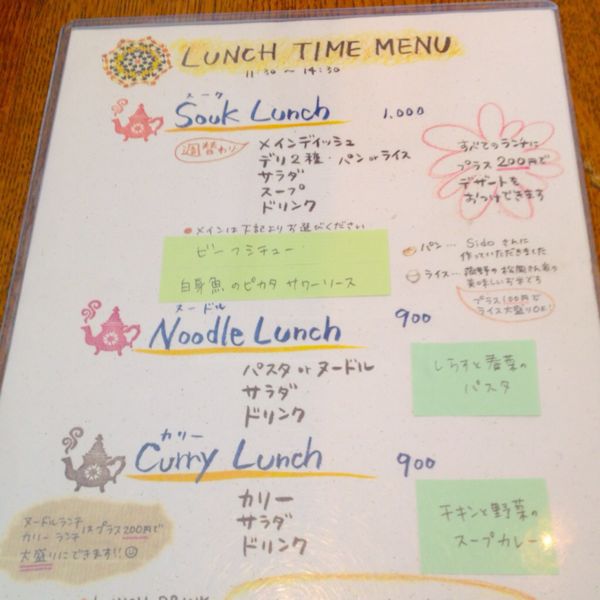 LUNCH TIME MENU
11:30 〜 14:30
スーク
Souk Lunch 1.000
週替わり
メインディッシュ
デリ2種・パン or ライス
サラダ
スープ
ドリンク
すべてのランチに
プラス200円で
デザートを
おつけできます
●メインは下記よりお選びください
ビーフシチュー
自身魚のピカタ サワーソース
パン… Sidoさんに
作っていただきました
ライス… 松岡さん家の
美味しいお米です
プラス100円で
ライス大盛りOK!
ヌードル
Noodle Lunch 900
パスタ or ヌードル
サラダ
ドリンク
しらすと春菜の
パスタ
カリー
Curry Lunch 900
カリー
サラダ
ドリンク
チキンと野菜の
スープカレー
ヌードルランチ
カリーランチ はプラス200円で
大盛りにできます!!
LUNCH DRINK